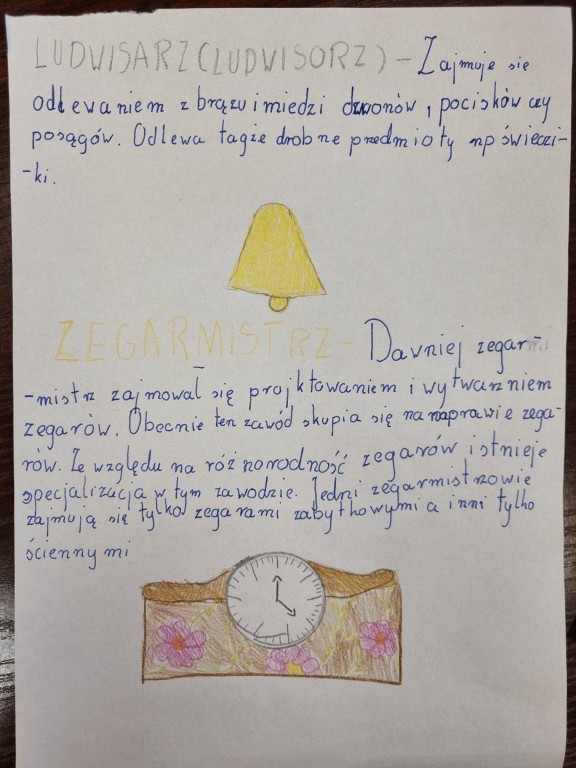 LUDWISARZ (LUDWISORZ) - Zajmuje się
odlewaniem z brązu i miedzi dzwonów, pocisków czy
posągów. Odlewa tagże drobne przedmioty np świeczi-
-ki.
ZEGARMISTRZ - Dawniej zegar-
-mistrz zajmował się projktowaniem i wytwarzniem
zegarów. Obecnie ten zawód skupia się na naprawie zega-
rów. Ze względu na różnorodność zegarów istnieje
specjalizacja w tym zawodzie. Jedni zegarmistrzowie
zajmują się tylko zegarami zabytkowymi a inni tylko
ściennymi